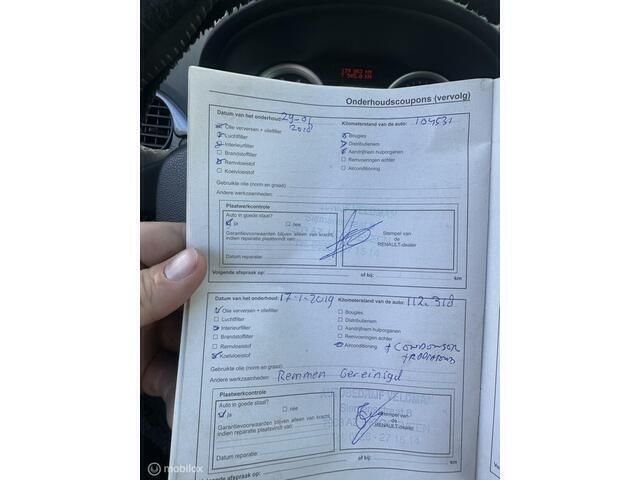 Onderhoudscoupons (vervolg)
Datum van het onderhoud: 29-01 2018 Kilometerstand van de auto: 104531
Olie verversen + oliefilter
Luchtfilter
Interieurfilter
Brandstoffilter
Remvloeistof
Koelvloeistof
Bougies
Distributieriem
Aandrijfriem hulporganen
Remvoeringen achter
Airconditioning
Gebruikte olie (norm en graad):
Andere werkzaamheden:
Plaatwerkcontrole
Auto in goede staat?
ja nee
Garantievoorwaarden blijven alleen van kracht,
indien reparatie plaatsvindt van:
Datum reparatie:
Stempel van
de
RENAULT-dealer
Volgende afspraak op: of bij: km
Datum van het onderhoud: 17-1-2019 Kilometerstand van de auto: 112.318
Olie verversen + oliefilter
Luchtfilter
Interieurfilter
Brandstoffilter
Remvloeistof
Koelvloeistof
Bougies
Distributieriem
Aandrijfriem hulporganen
Remvoeringen achter
Airconditioning + CONDONSER
Gebruikte olie (norm en graad):
Andere werkzaamheden: Remmen Gereinigd
Plaatwerkcontrole
Auto in goede staat?
ja nee
Garantievoorwaarden blijven alleen van kracht,
indien reparatie plaatsvindt van:
Datum reparatie:
Stempel van
de
RENAULT-dealer
Volgende afspraak op: of bij: km
mobilox